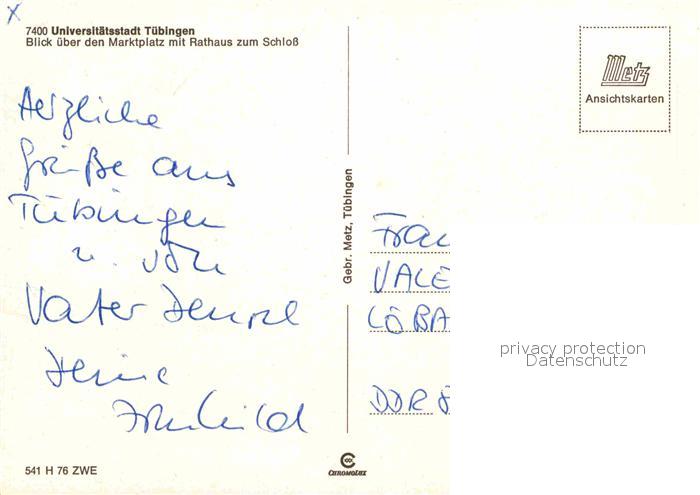 7400 Universitätsstadt Tübingen
Blick über den Marktplatz mit Rathaus zum Schloß
Metz
Ansichtskarten
Herzliche
Grüße aus
Tübingen
u. von
Vater
Deine
Gebr. Metz, Tübingen
Frau
VALE
LÖBA
privacy protection
Datenschutz
DDR 8
541 H 76 ZWE
CHROMOLUX